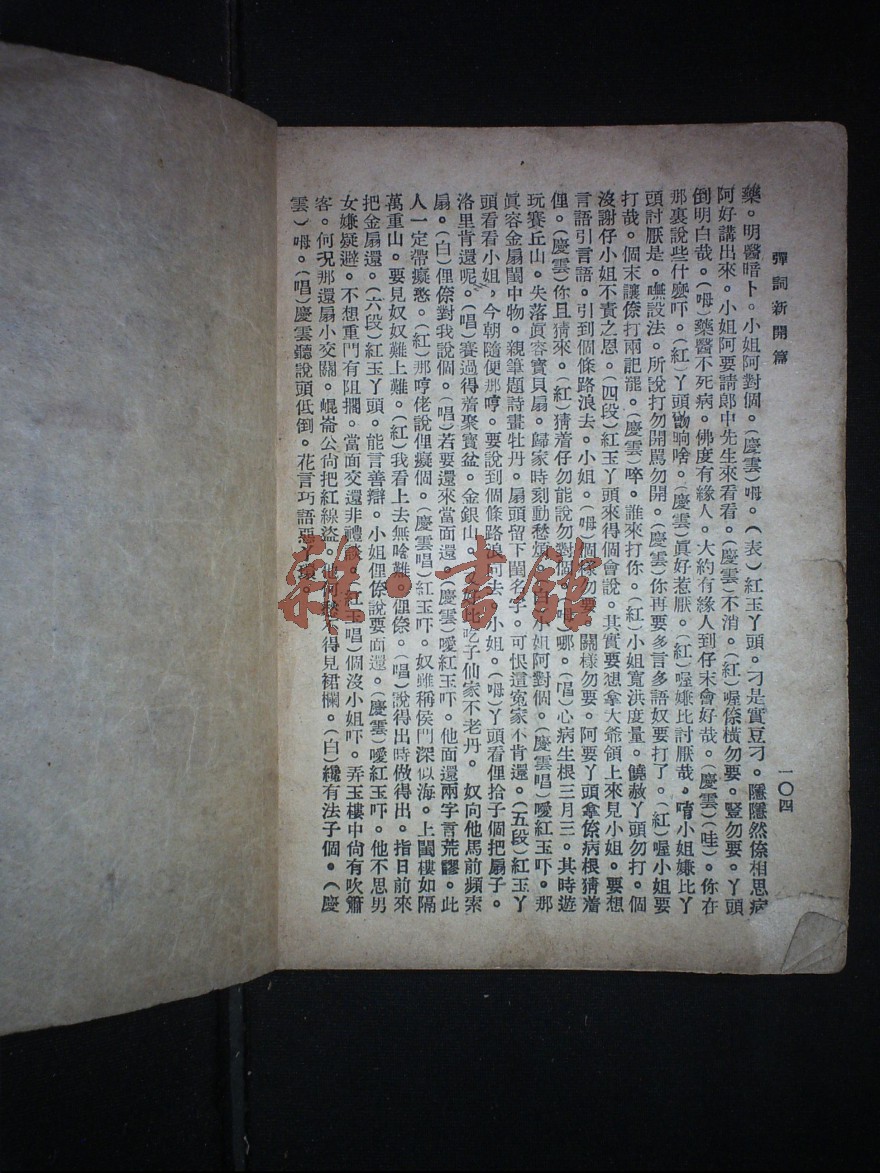 彈詞新開篇
一〇四
藥。明醫暗卜。小姐阿對個。(慶雲)嘸。(表)紅玉丫頭。刁是實豆刁。隱隱然倷相思病
阿好講出來。小姐阿要請郎中先生來看看。(慶雲)不消。(紅)喔倷橫勿要。豎勿要。丫頭
倒明白哉。(嘸)藥醫不死病。佛度有緣人。大約有緣人到仔末會好哉。(慶雲)(哇)。你在
那裏說些什麼吓。(紅)丫頭勿响啥。(慶雲)眞好惹厭。(紅)喔嫌比討厭哉。唷小姐嫌比丫
頭討厭是。嘸設法。所說打勿開罵勿開。(慶雲)你再要多言多語奴要打了。(紅)喔小姐要
打哉。個末讓倷打兩記罷。(慶雲)啐。誰來打你。(紅)小姐寬洪度量。饒赦丫頭勿打。個
沒謝仔小姐不責之恩。(四段)紅玉丫頭來得個會說。其實要想拿大爺領上來見小姐。要想
言語引言語。引到個條路浪去。小姐。(嘸)個樣勿要。關樣勿要。阿要丫頭拿倷病根猜着
俚。(慶雲)你且猜來。(紅)猜着仔勿能說勿對個。哪。(唱)心病生根三月三。其時遊
玩賽丘山。失落眞容寶貝扇。歸家時刻動愁煩。(白)小姐阿對個。(慶雲唱)噯紅玉吓。那
眞容金扇閨中物。親筆題詩畫牡丹。扇頭留下閨名字。可恨這冤家不肯還。(五段)紅玉丫
頭看看小姐,今朝隨便那哼。要說到個條路浪向去。小姐。(嘸)丫頭看俚拾子個把扇子。
洛里肯還呢。(唱)賽過得着聚寳盆。金銀山。又好比吃子仙家不老丹。奴向他馬前頻索
扇。(白)俚倷對我說個。(唱)若要還來當面還。(慶雲)噯紅玉吓。他面還兩字言荒謬。此
人一定帶癡憨。(紅)那哼佬說俚癡個。(慶雲唱)紅玉吓。奴雖稱侯門深似海。上閨樓如隔
萬重山。要見奴奴難上難。(紅)我看上去無啥難。俚倷。(唱)說得出時做得出。指日前來
把金扇還。(六段)紅玉丫頭。能言善辯。小姐俚倷說要面還。(慶雲)噯紅玉吓。他不思男
女嫌疑避。不想重門有阻攔。當面交還非禮談。(紅玉唱)個沒小姐吓。弄玉樓中尙有吹簫
客。何况那還扇小交關。崐崙公尙把紅線盜。他何愁不得見裙欄。(白)纔有法子個。(慶
雲)嘸。(唱)慶雲聽說頭低倒。花言巧語惡丫環。
雜·書館